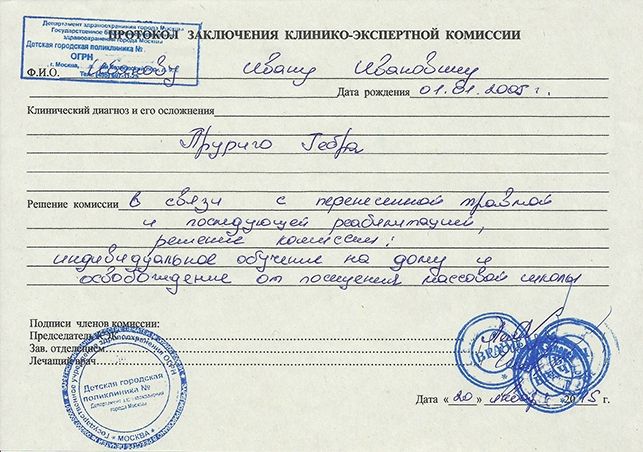 Департамент здравоохранения города Москвы
Государственное
здравоохранения города Москвы
Детская городская поликлиника №
ОГРН
г. Москва,
ПРОТОКОЛ ЗАКЛЮЧЕНИЯ КЛИНИКО-ЭКСПЕРТНОЙ КОМИССИИ
Ф.И.О. Иванову Ивану Ивановичу
Дата рождения 01.01.2005 г.
Клинический диагноз и его осложнения
Пруриго Гебра
Решение комиссии в связи с перенесенной травмой
и последующей реабилитацией,
решение комиссии:
индивидуальное обучение на дому и
освобождение от посещения массовой школы
Подписи членов комиссии:
Председатель КЭК
Зав. отделением
Лечащий врач
Детская городская
поликлиника №
Департамент здравоохранения
города Москвы
* МОСКВА *
Дата «20» 2015г.